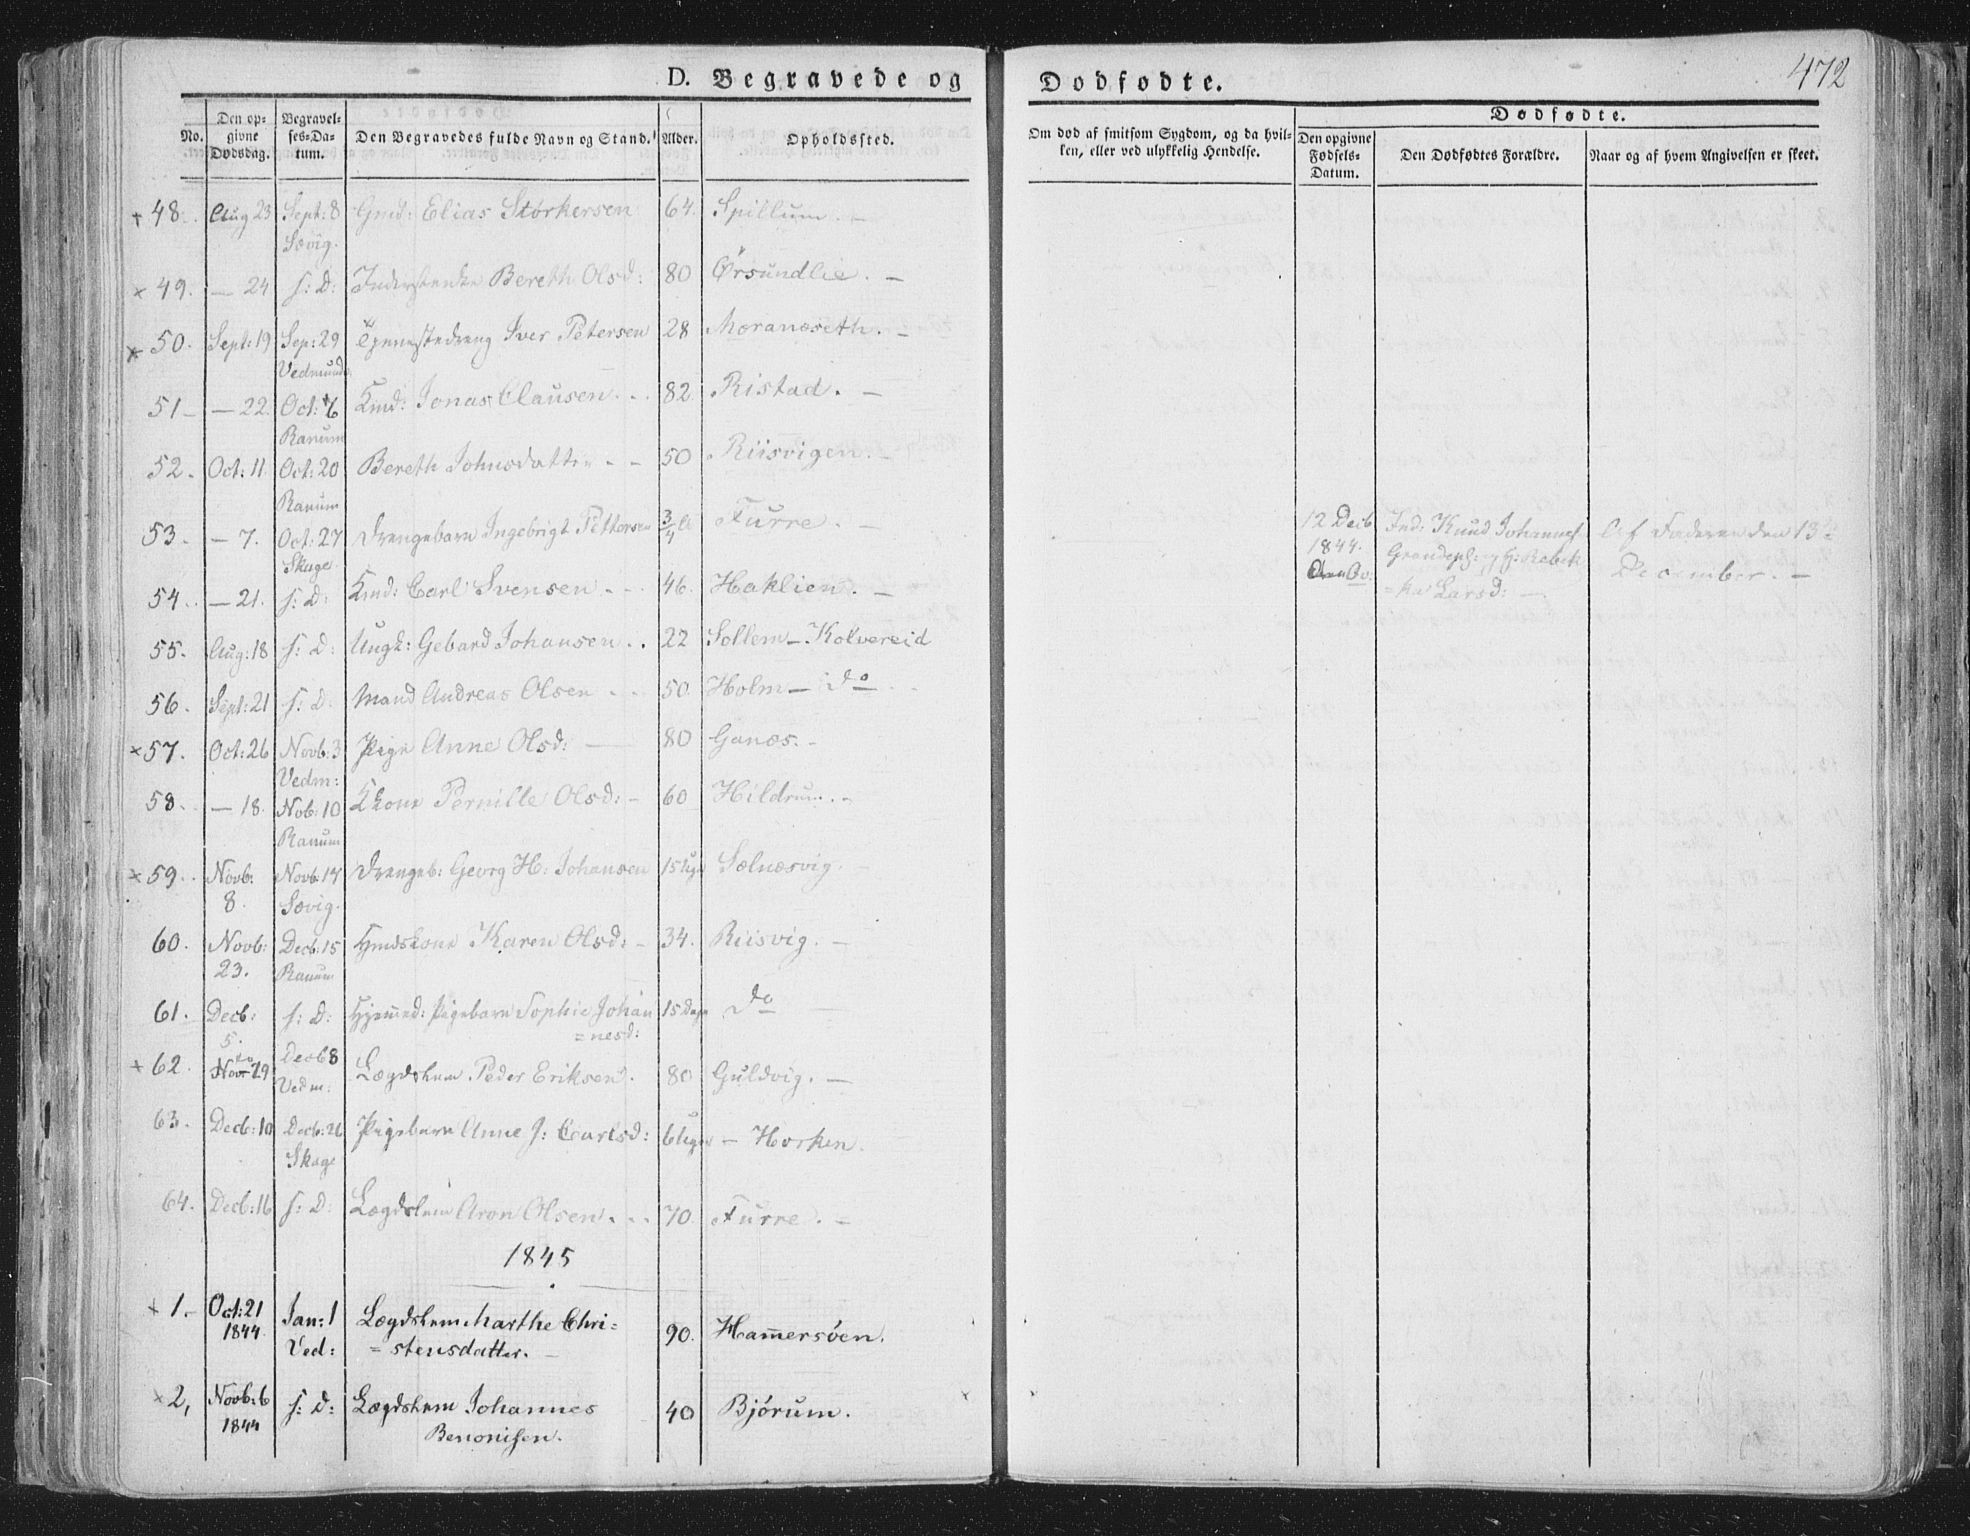 472
D. Begravede og
Dødfødte.
No.
Den op-
givne
Dødsdag.
Begravel-
ses-Da-
tum.
Den Begravedes fulde Navn og Stand.
Alder.
Opholdssted.
Om død af smitsom Sygdom, og da hvil-
ken, eller ved ulykkelig Hendelse.
Dødfødte.
Den opgivne
Fødsels-
Datum.
Den Dødfødtes Forældre.
Naar og af hvem Angivelsen er skeet.
+ 48. Aug 23 Sept: 8 Gmd: Elias Størkersen 64. Spillum. –
Sævig.
× 49. — 24 s: D: Inderstenke Bereth Olsd: 80 Ørsundlie. –
× 50. Sept: 19 Sep: 29 Tjenestedreng Iver Petersen 28 Moranæseth. –
Vedmund:
51 – — 22. Oct: 6 Kmd: Jonas Clausen. . . 82. Ristad. –
Ranum
52. Oct: 11 Oct: 20 Bereth Johnsdatter - - 50 Riisvigen. –
Ranum
53. — 7. Oct: 27 Drengebarn Ingebrigt Pettersen 3/4 A Furre. –
Skage
54. — 21. s: D: Kmd: Carl Svensen. - - 46. Haklien. –
55. Aug: 18 s: D: Ungk: Gebard Johansen. . 22 Sollem – Kolvereid
56. Sept: 21 s: D: Mand Andreas Olsen - - - 50. Holm – Do
× 57. Oct: 26 Novb: 3 Pige Anne Olsd: — 80 Ganæs. –
Vedm:
58. — 18. Nob: 10 Kkone Pernille Olsd: – 60 Hildrum. –
Ranum
× 59. Novb: Novb: 17 Drengeb: Georg H: Johansen 15 Uger Sælnæsvig. –
8. Sævig.
60. Novb: Decb: 15 Hmdskone Karen Olsd: – 34. Riisvig. –
23. Ranum
61. Decb: s: D: Hjemmed: Pigebarn Sophie Johan 15 Dage Do —
5. = nesd:
× 62. Nov 29 Decb 8 Lægdslem Peder Eriksen. 80 Guldvig. —
Vedm:
63. Decb: 10 Decb: 26 Pigebarn Anne J: Carlsd: 6 Uger – Horken.
Skage
64. Decb: 16 s: D: Lægdslem Aron Olsen. . . 70. Furre. –
12 Decb
1844.
Ind: Knud Johannes
Grandeph: og H: Rebek
= ka Larsd: —
Af Faderen den 13de
December. —
1845
× 1. – Oct: 21 Jan: 1 Lægdslem Marthe Chri=
1844 Ved: = stensdatter. – 90. Hamersøen.
× 2, Novb: 6 s: D: Lægdslem Johannes 40 Bjørum.
1844 Benonisen.